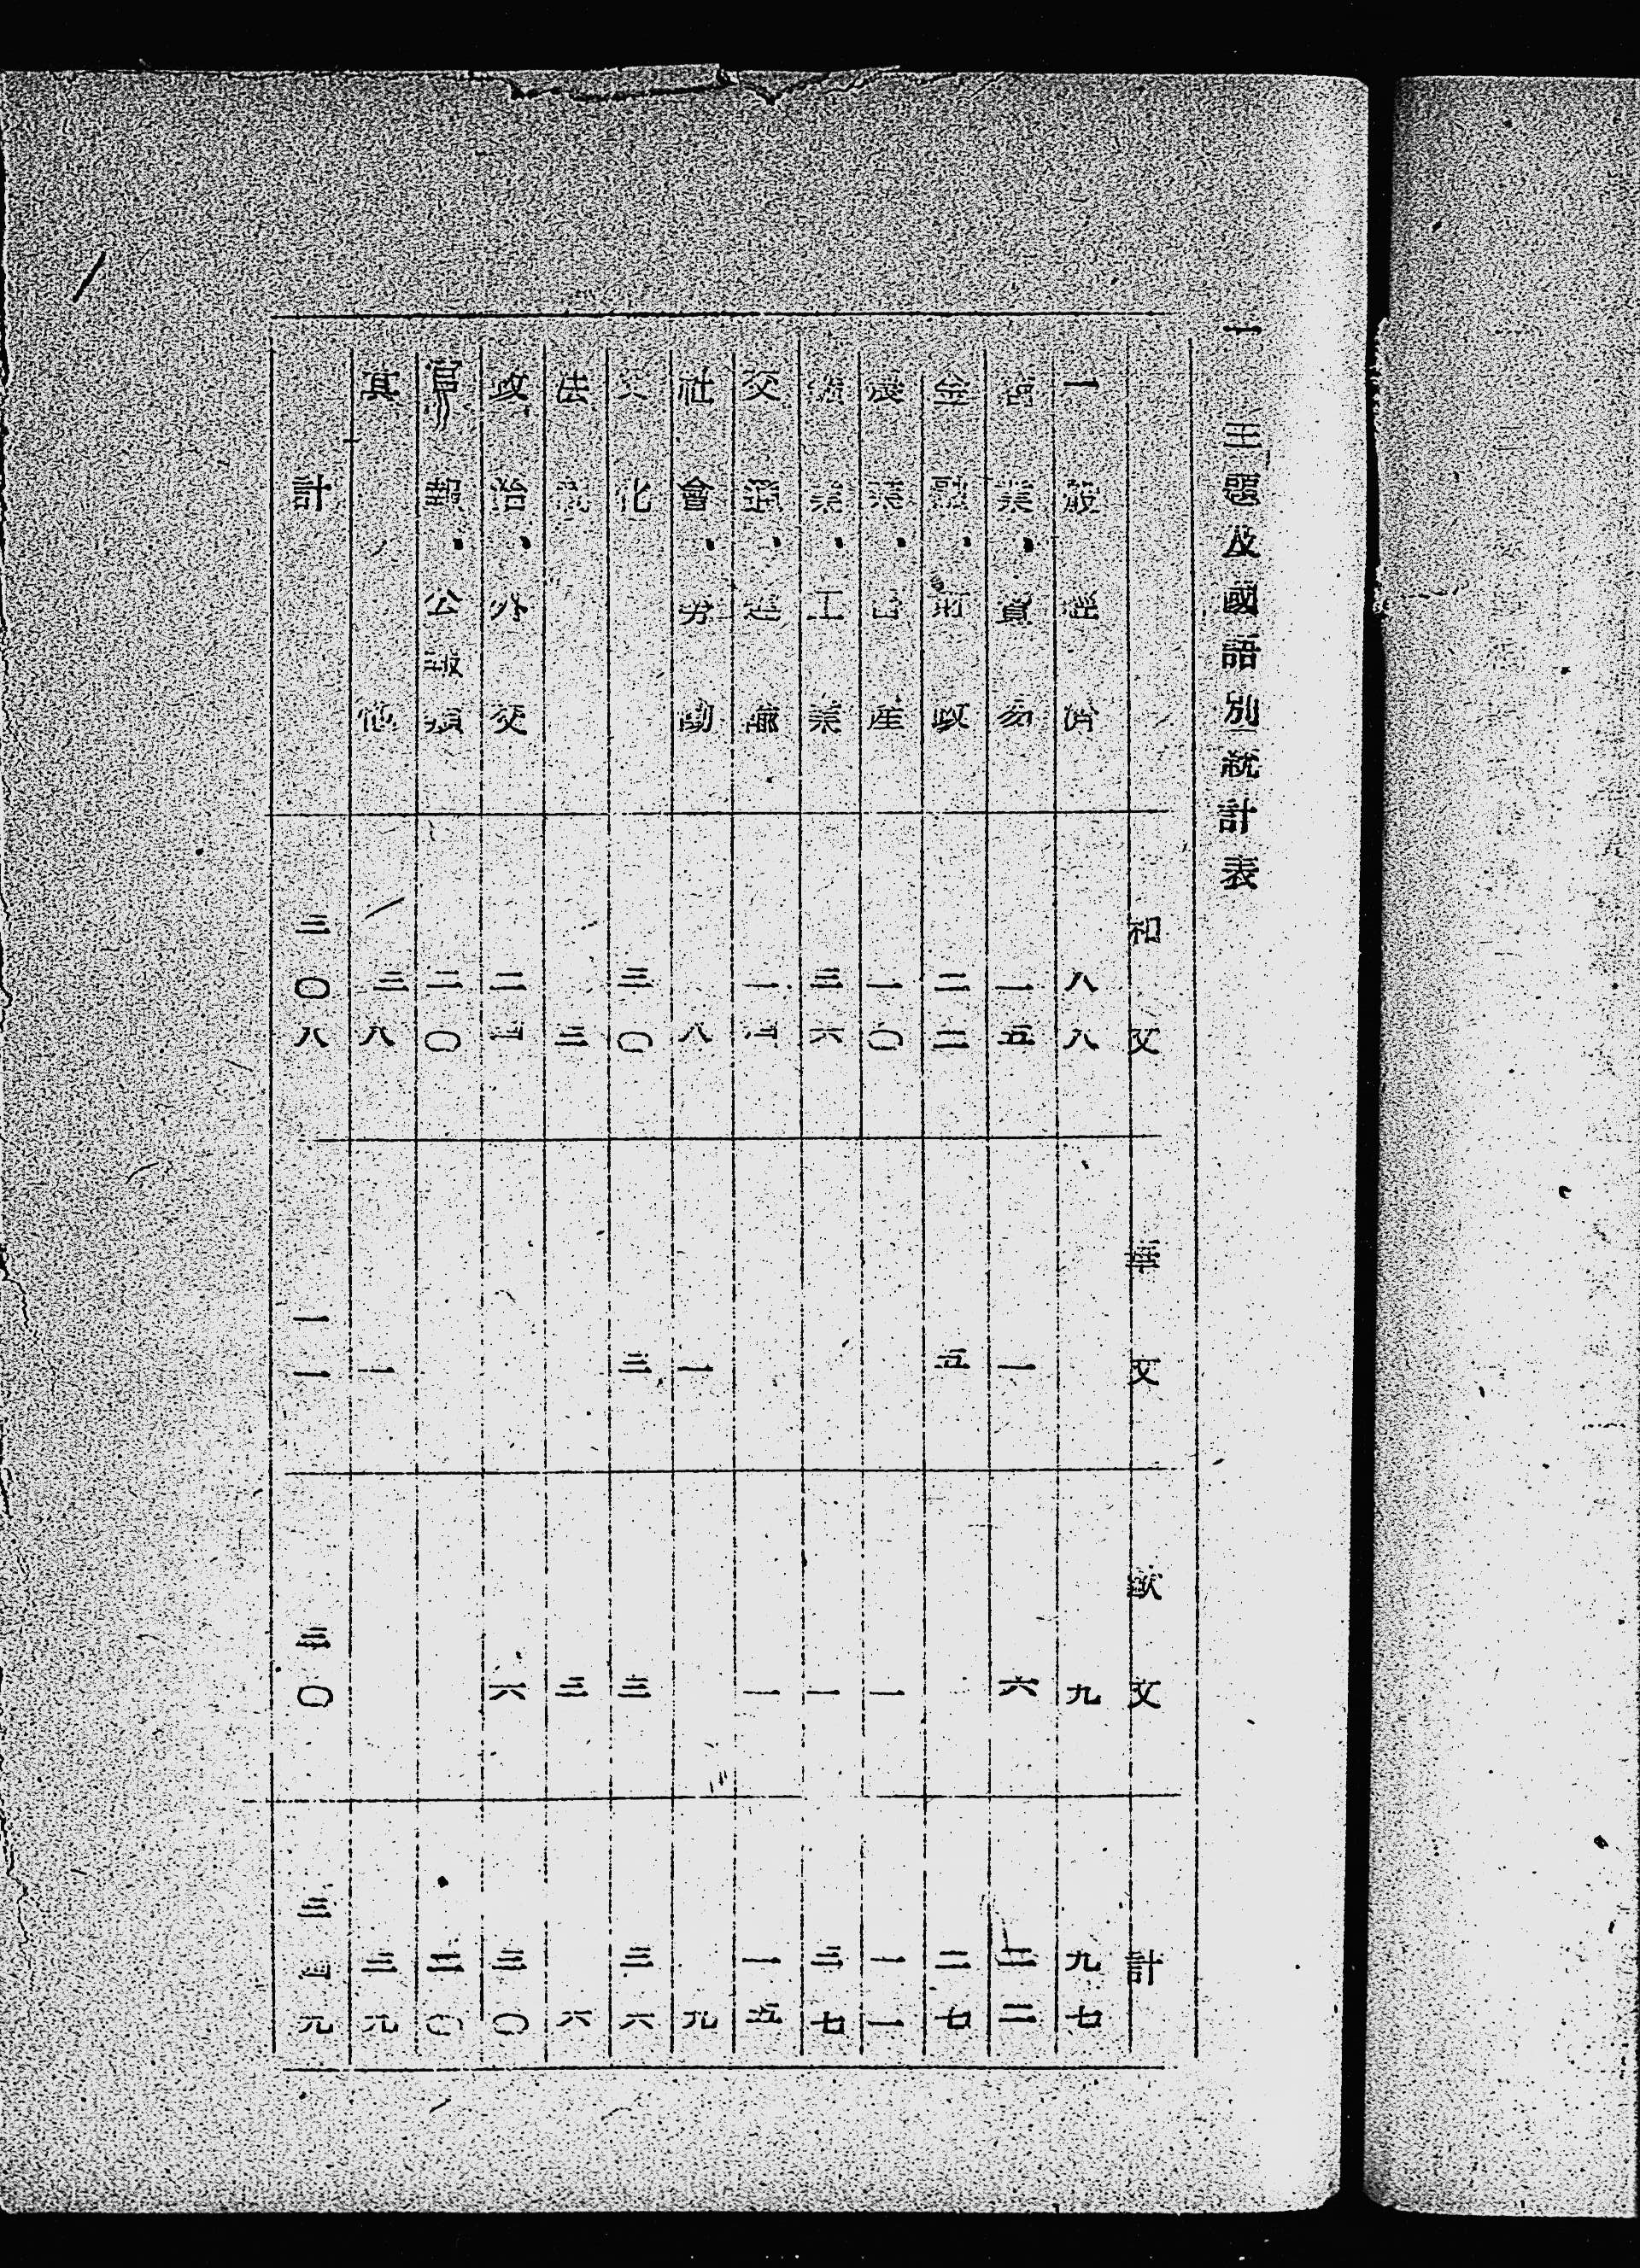 一 主題及國語別統計表
和文 華文 歐文 計
一般經濟 八八 九 九七
商業、貿易 一五 一 六 二二
金融、財政 二二 五 二七
農業、畜産 一〇 一 一一
鑛業、工業 三六 一 三七
交通、運輸 一四 一 一五
社會、勞働 八 一 九
文化 三〇 三 三 三六
法制 三 三 六
政治、外交 二四 六 三〇
官報、公報類 二〇 二〇
其他 三八 一 三九
計 三〇八 一一 三〇 三四九